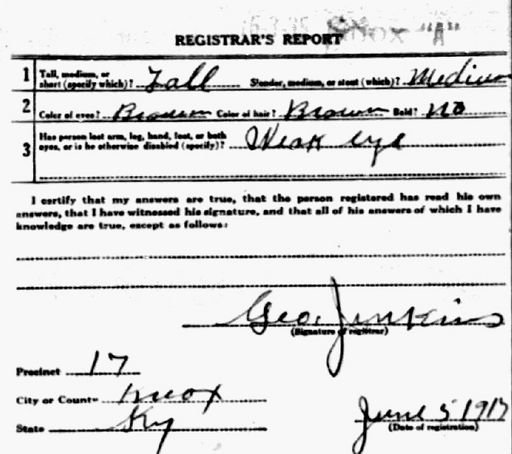 Knox "A"
REGISTRAR'S REPORT
1 Tall, medium, or short (specify which)? Tall Slender, medium, or stout (which)? Medium
2 Color of eyes? Brown Color of hair? Brown Bald? No
3 Has person lost arm, leg, hand, foot, or both eyes, or is he otherwise disabled (specify)? Weak eye
I certify that my answers are true, that the person registered has read his own
answers, that I have witnessed his signature, and that all of his answers of which I have
knowledge are true, except as follows:
Geo. Jenkins
(Signature of registrar)
Precinct 17
City or County Knox
State Ky
June 5 1917
(Date of registration)